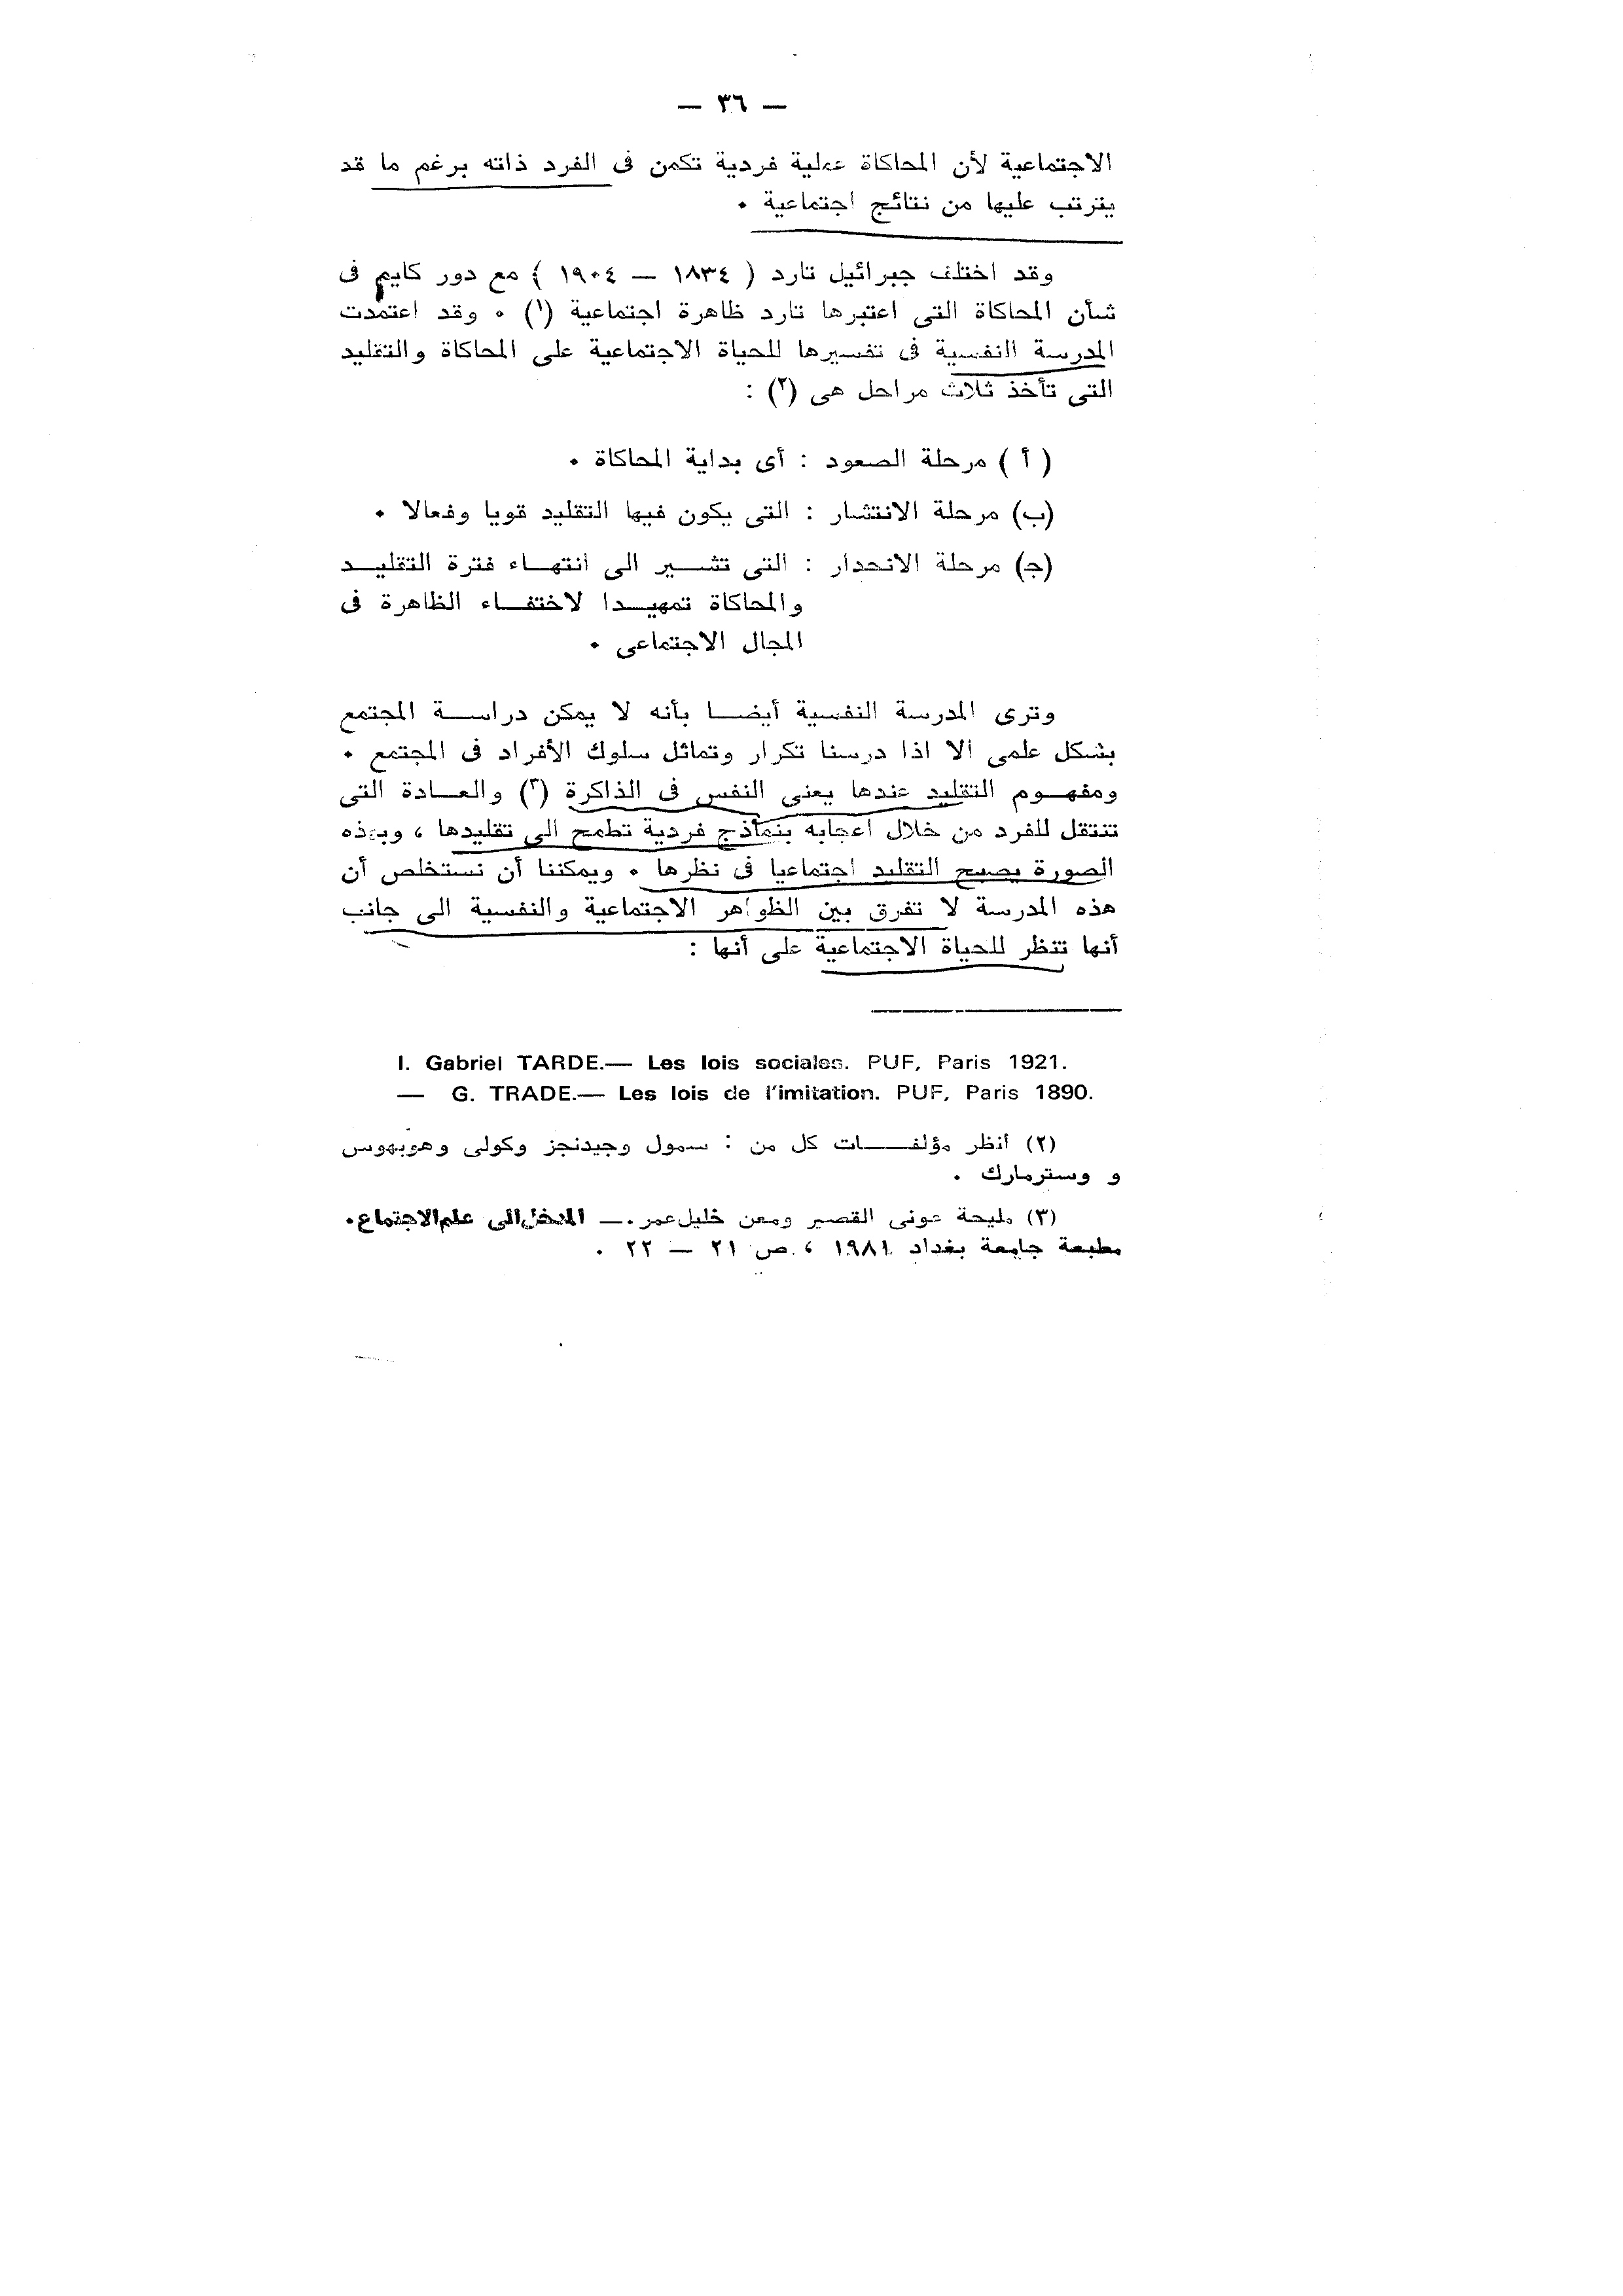 — ٣٦ —
الاجتماعية لأن المحاكاة عملية فردية تكمن فى الفرد ذاته برغم ما قد
يترتب عليها من نتائج اجتماعية .
وقد اختلف جبرائيل تارد ( ١٨٣٤ — ١٩٠٤ ) مع دور كايم فى
شأن المحاكاة التى اعتبرها تارد ظاهرة اجتماعية (١) . وقد اعتمدت
المدرسة النفسية فى تفسيرها للحياة الاجتماعية على المحاكاة والتقليد
التى تأخذ ثلاث مراحل هى (٢) :
( أ ) مرحلة الصعود : أى بداية المحاكاة .
(ب) مرحلة الانتشار : التى يكون فيها التقليد قويا وفعالا .
(ج) مرحلة الانحدار : التى تشير الى انتهاء فترة التقليد
والمحاكاة تمهيدا لاختفاء الظاهرة فى
المجال الاجتماعى .
وترى المدرسة النفسية أيضا بأنه لا يمكن دراسة المجتمع
بشكل علمى الا اذا درسنا تكرار وتماثل سلوك الأفراد فى المجتمع .
ومفهوم التقليد عندها يعنى النفس فى الذاكرة (٣) والعادة التى
تنتقل للفرد من خلال اعجابه بنماذج فردية تطمح الى تقليدها ، وبهذه
الصورة يصبح التقليد اجتماعيا فى نظرها . ويمكننا أن نستخلص أن
هذه المدرسة لا تفرق بين الظواهر الاجتماعية والنفسية الى جانب
أنها تنظر للحياة الاجتماعية على أنها :
I. Gabriel TARDE.— Les lois sociales. PUF, Paris 1921.
— G. TRADE.— Les lois de l'imitation. PUF, Paris 1890.
(٢) أنظر مؤلفات كل من : سمول وجيدنجز وكولى وهوبهوس
و وسترمارك .
(٣) مليحة عونى القصير ومعن خليل عمر .— المدخل الى علم الاجتماع.
مطبعة جامعة بغداد ١٩٨١ ، ص ٢١ — ٢٢ .